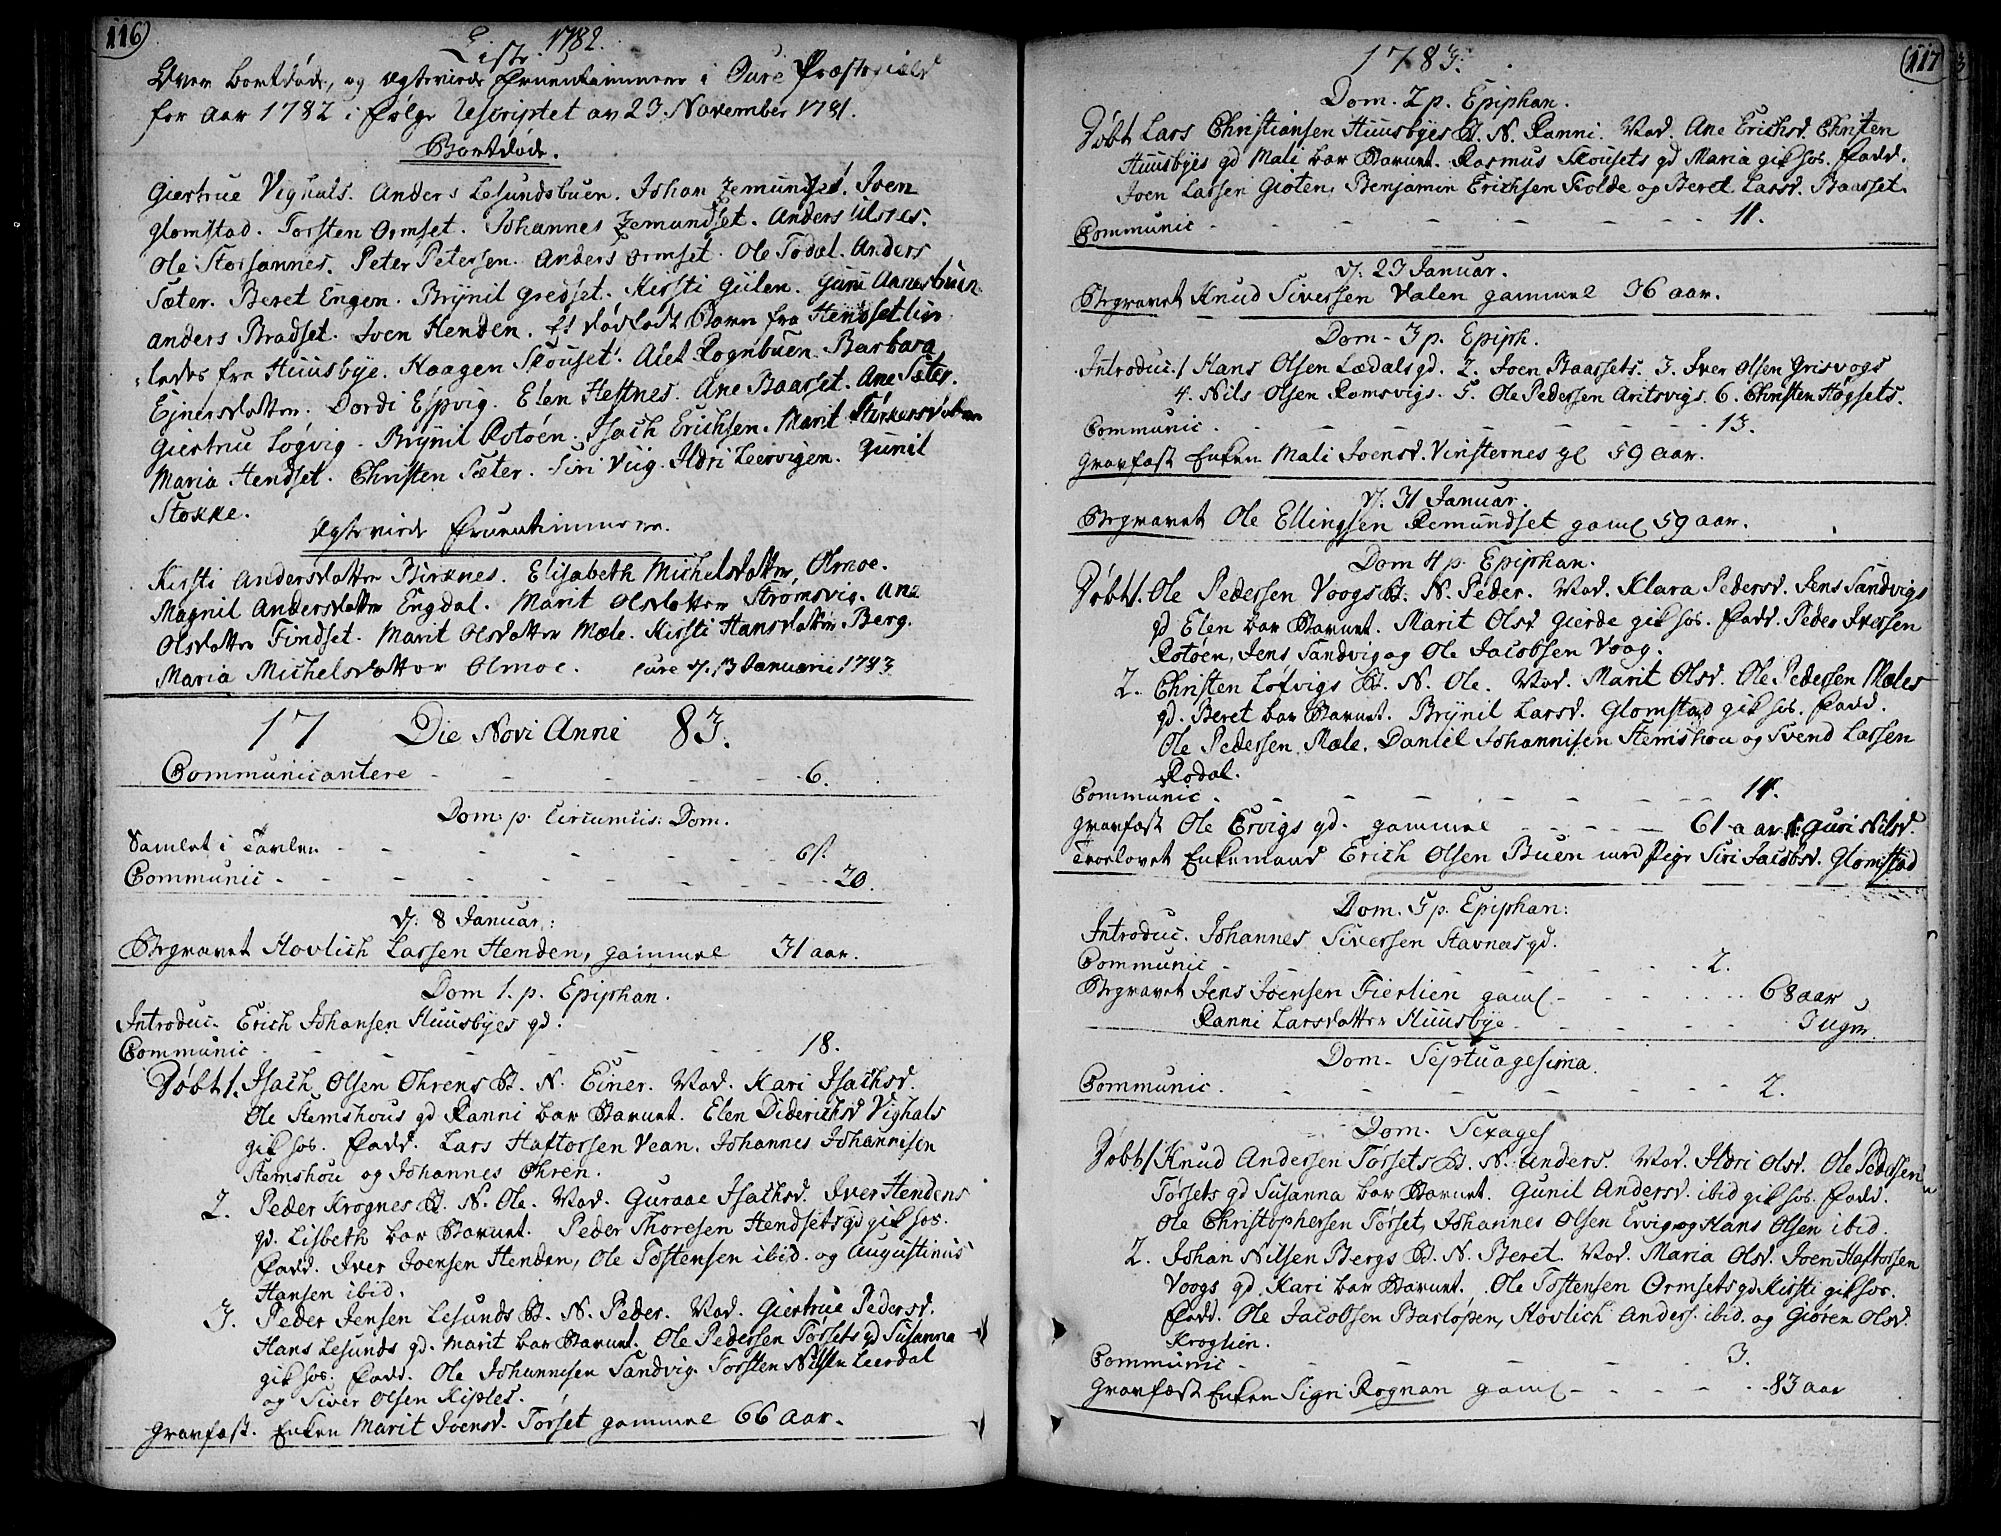 116
1782.
Liste
Over bortdøde, og Ægteviede Fruentimmere i Øure Præstegield
for Aar 1782 i følge Rescriptet av 23 November 1781.
Bortdøde.
Giertrue Vighals. Anders Lesundsbuen. Johan Jemundset. Joen
Glomstad. Torsten Ormset. Johannes Jemundset. Anders Ulsnes.
Ole Storsannes. Peter Petersen. Anders Ormset. Ole Todal. Anders
Sæter. Beret Engen. Brÿnil Gredset. Kirsti Gulen. Guru Aanesbuen
Anders Bradset. Joen Henden. Et dødfødt Barn fra Hendsetlien
fra Huusbÿe. Haagen Skouset. Alet Rognbuen. Barbara
Ejnersdatter. Dordi Espvig. Elen Hestnes. Ane Baasset. Ane Sæter.
Giertrue Løgvig. Brÿnil Rotøen. Isach Erichsen. Marit Størkersdatter
Maria Hendset. Christen Sæter. Siri Viig. Ildri Leervigen. Gunil
Stokke.
Ægteviede Fruentimmere.
Kirsti Andersdatter Birknes. Elisabeth Michelsdatter, Olmoe.
Magnil Andersdatter Engdal. Marit Olsdatter Strømsvig. Ane
Olsdatter Findset. Marit Olsdatter Mæle. Kirsti Hansdatter Berg.
Maria Michelsdatter Olmoe. Eure d. 13 Januarii 1783
17 Die Novi Anni 83.
Communicantere - - - - - 6.
Dom. p. Circumcis: Dom.
Samlet i Tavlen - - - - - 6 s.
Communic - - - - - 20.
d: 8 Januar:
Begravet Hovlich Larsen Henden, gammel 31 aar.
Dom 1. p. Epiphan.
Introduc. Erich Johansen Huusbÿes gd.
Communic - - - - - 18.
Døbt 1. Isach Olsen Ohrens B. N. Einer. Mod. Kari Isachsd.
Ole Stemshous gd Ranni bar Barnet. Elen Diderichsd Vighals
gik hos. Fadd. Lars Haftorsen Vean. Johannes Johannisen
Stemshou og Johannes Ohren.
2. Peder Krognes B. N. Ole. Mod. Guraae Isachsd. Iver Hendens
gd. Lisbeth bar Barnet. Peder Thoresen Hendsets gd gik hos.
Fadd. Iver Joensen Henden, Ole Tostensen ibid. og Augustinus
Hansen ibid.
3. Peder Jensen Lesunds B. N. Peder. Mod. Giertrue Pedersd.
Hans Lesunds gd. Marit bar Barnet. Ole Pedersen Torsets gd Susanna
gik hos. Fadd. Ole Johannesen Sandvig. Torsten Nilsen Leerdal
og Siver Olsen Kiples.
Gravfæst. Enken Marit Joensd. Torset gammel 66 Aar.
117
1783.
Dom. 2 p. Epiphan.
Døbt Lars Christiansen Huusbÿes B. N. Ranni. Mod. Ane Erichsd. Christen
Huusbÿes gd Mali bar Barnet. Rasmus Skousets gd Maria gik hos. Fadd.
Joen Larsen Giøten, Benjamin Erichsen Folde og Beret Larsd. Baasset.
Communic - - - - - 11.
d: 23 Januar.
Begravet Knud Siversen Valen gammel 36 aar.
Dom. 3 p. Epiph.
Introduc. 1 Hans Olsen Lædals gd. 2. Joen Baassets. 3. Iver Olsen Grisvogs
4. Nils Olsen Romsvigs. 5. Ole Pedersen Aritsvigs. 6. Christen Høgsets.
Communic. - - - - - 13.
Gravfæst Enken Mali Joensd. Vinsternes gl 59 aar.
d. 31 Januar.
Begravet Ole Ellingsen Remundset gaml 59 aar.
Dom 4 p. Epiphan.
Døbt 1. Ole Pedersen Voogs B. N. Peder. Mod. Klara Pedersd. Jens Sandvigs
gd Elen bar Barnet. Marit Olsd Gierde gik hos. Fadd. Peder Iversen
Rotøen, Jens Sandvig og Ole Jacobsen Voog.
2. Christen Lofvigs B. N. Ole. Mod. Marit Olsd. Ole Pedersen Mæles
gd. Beret bar Barnet. Brÿnil Larsd. Glomstad gik hos. Fadd.
Ole Pedersen Mæle. Daniel Johannisen Stemshou og Svend Larsen
Rodal.
Communic. - - - - - 11.
Gravfæst Ole Ervigs gd. gammel - - - 61 aar N: Guri Nilsd.
Troelovet Enkemand Erich Olsen Buen med Pige Siri Jacobsd. Glomstad
Dom. 5 p. Epiphan:
Introduc. Johannes Siversen Stavnes gd.
Communic - - - - - 2.
Begravet Jens Joensen Fierlien gaml - - - 68 aar
Ranni Larsdatter Huusbÿe - - - 3 uger
Dom. Septuagesima.
Communic. - - - - - 2.
Dom. Sexages
Døbt 1 Knud Andersen Torsets B. N. Anders. Mod. Ildri Olsd. Ole Pedersen
Torsets gd Susanna bar Barnet. Gunil Andersd. ibid gik hos. Fadd.
Ole Christophersen Torset, Johannes Olsen Ervig og Hans Olsen ibid.
2. Johan Nilsen Bergs B. N. Beret. Mod. Maria Olsd. Joen Haftorsen
Voogs gd Kari bar Barnet. Ole Tostensen Ormsets gd Kirsti gik hos.
Fadd. Ole Jacobsen Barlopen, Hovlich Anders. ibid. og Giøren Olsd.
Kroglien.
Communic - - - - - 3.
Gravfæst Enken Sigri Rognan gaml - - - 83 aar